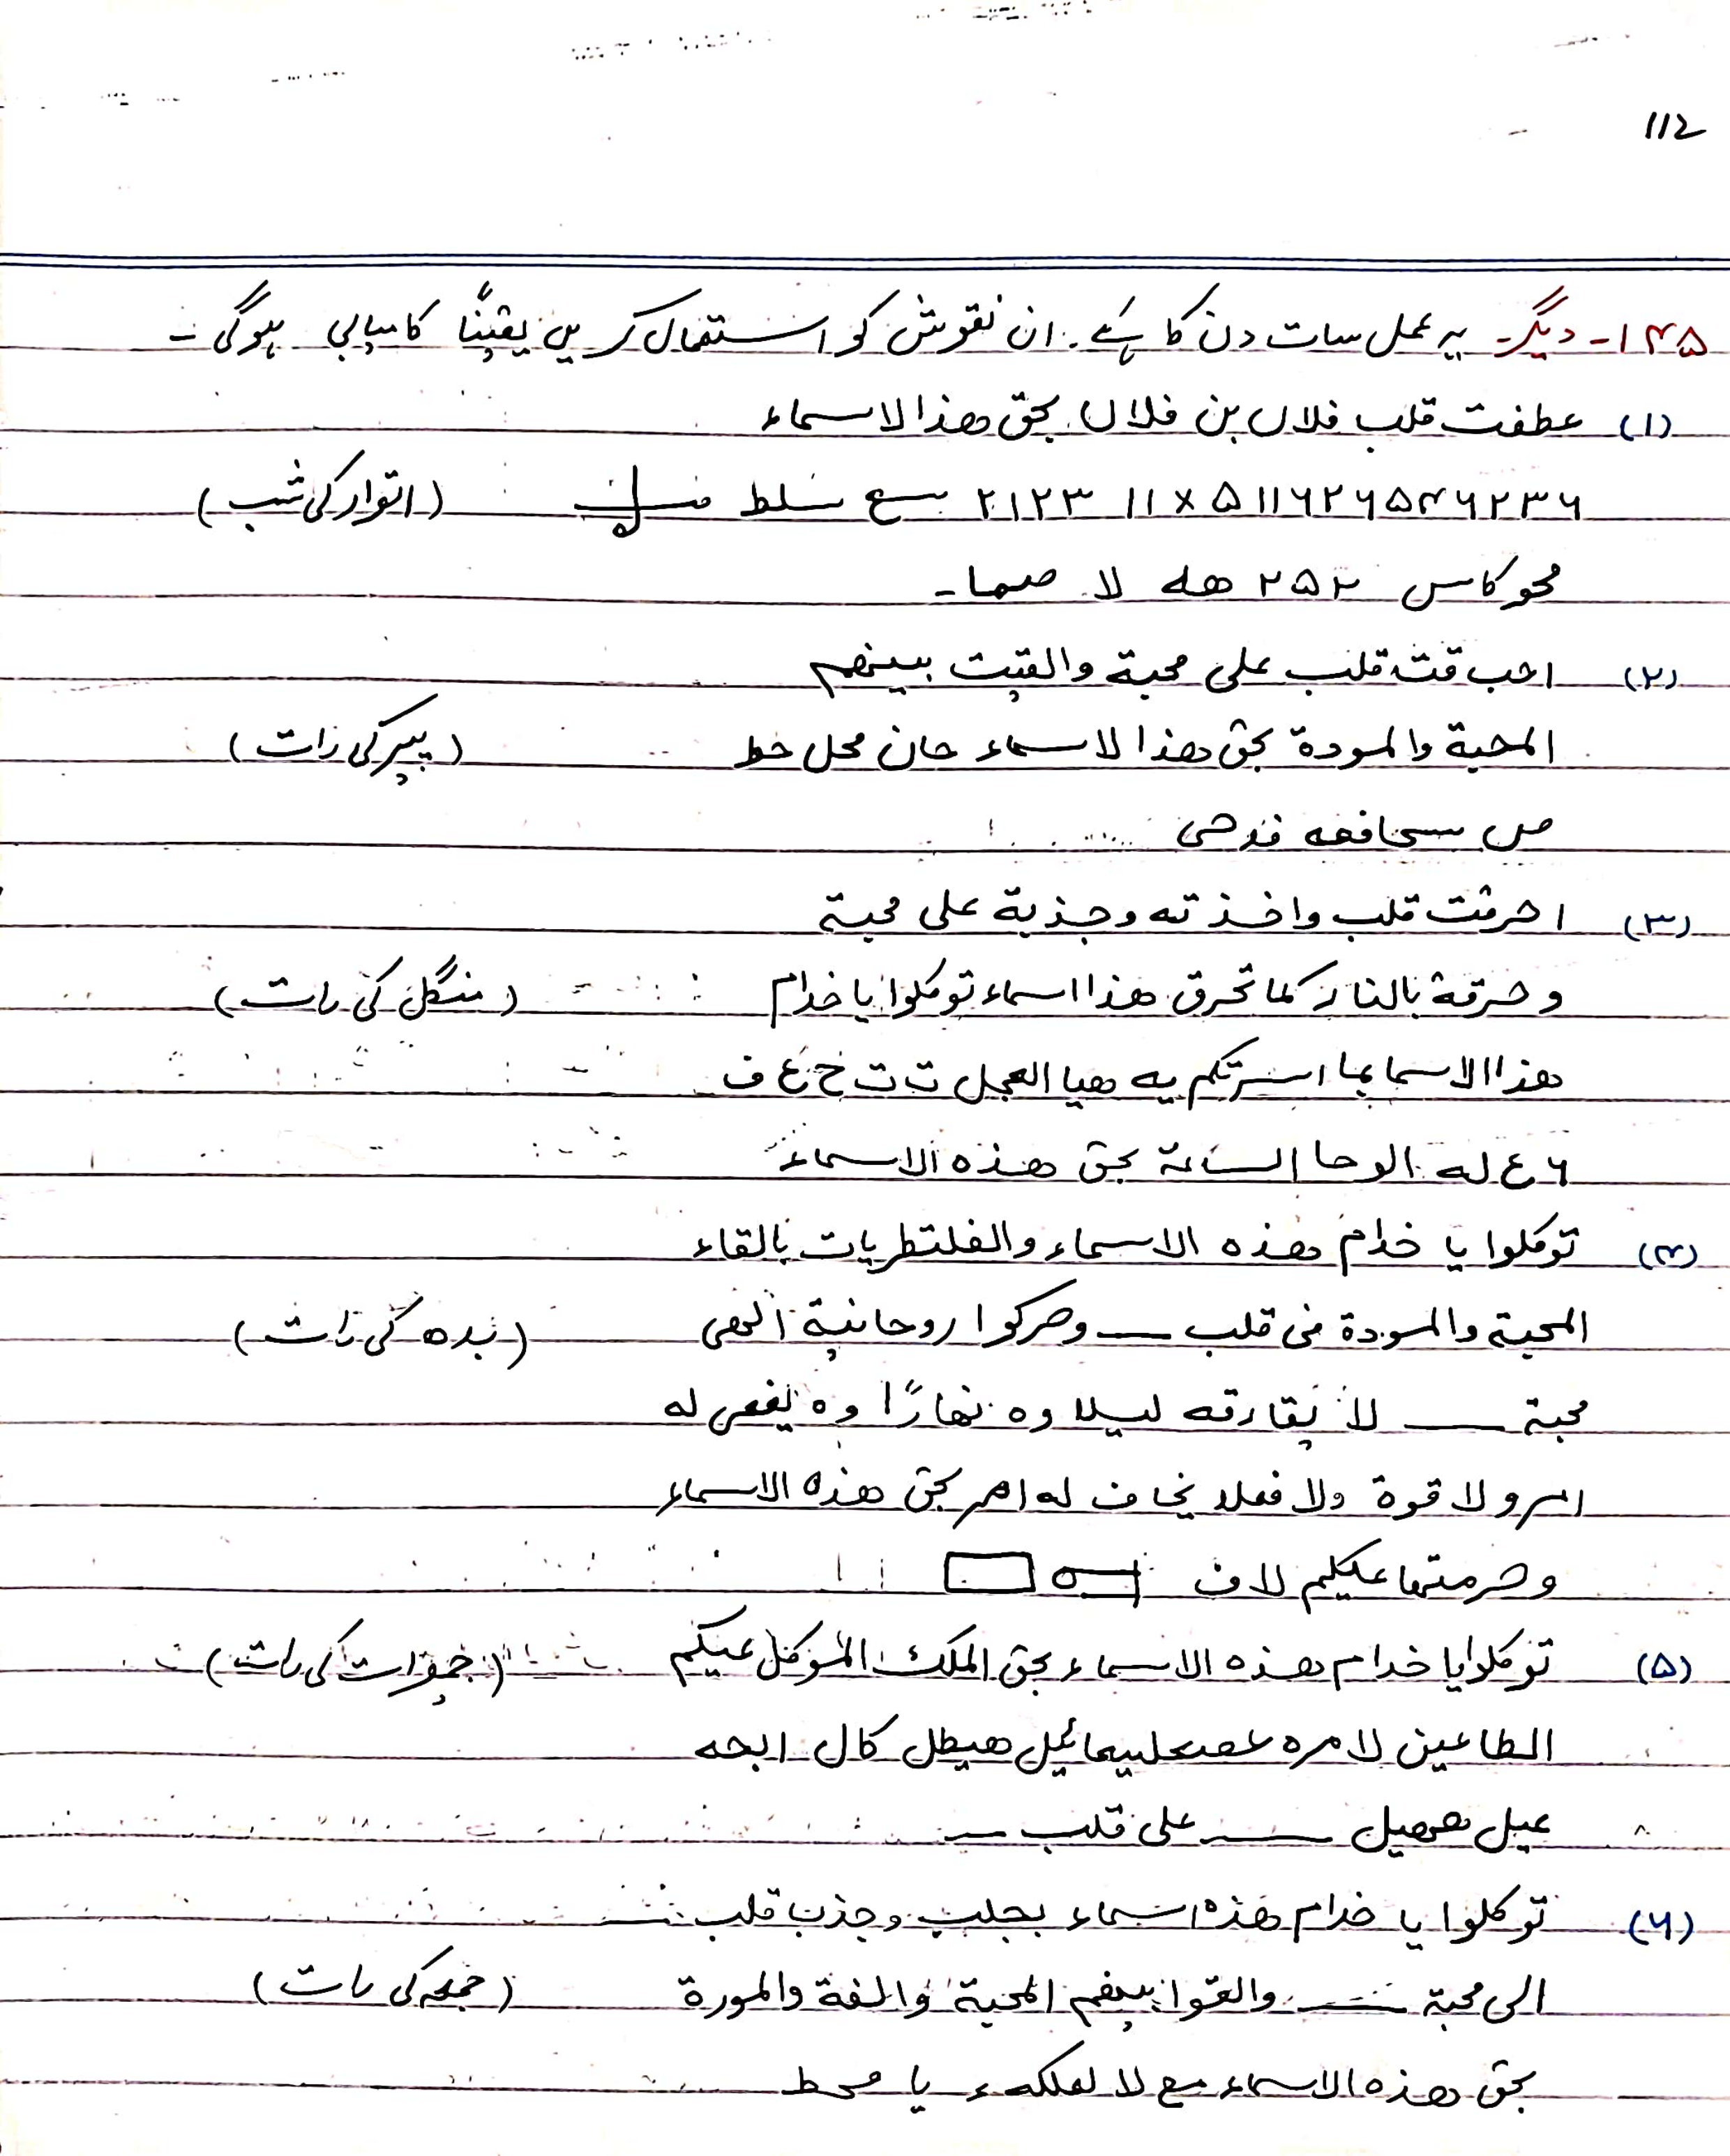 112
۱۴۵- دیگر۔ یہ عمل سات دن کا ہے۔ ان نقوش کو استعمال کریں یقیناً کامیابی ہوگی۔
(۱) عطفت قلب فلاں بن فلاں بحق ھذا الاسماء
۲۱۲۳ ۱۱ x ۵۱۱۶۲۶۵۴۶۲۳۶ سع سلط (اتوار کی شب)
محو کاس ۲۵۲ ھلہ لا صما۔
(۲) احب قت قلب علی محبة والقیت بینھم
المحبة والمودة بحق ھذا لاسماء حان محل حط (پیر کی رات)
ص سحافعہ
(۳) احرقت قلب واخذ تہ وجذبة علی محبة
وحرقة بالنار کما تحرق ھذا اسماء توکلوا یا خدام (منگل کی رات)
ھذا الاسما بما اسرتکم بہ ھیا العجل ت ت خ غ ف
۶ ع لہ الوحا الساعة بحق ھذہ الاسماء
(۴) توکلوا یا خدام ھذہ الاسماء والفلتطریات بالقاء
المحبة والمودة فی قلب ـــ وحرکوا روحانیة (بدھ کی رات)
محبة ـــ لا یقارقہ لیلا وہ نھارًا وہ یغصی لہ
اسر ولا قوة ولا فعلا یخاف لہ امر بحق ھذہ الاسماء
وحرمتھا علیکم لاف
(۵) توکلوا یا خدام ھذہ الاسماء بحق الملک المؤکل علیکم (جمعرات کی رات)
الطاعین لامرہ ھیطل کال ابجہ
عیل ھھیل ـــ علی قلب ـــ
(۶) توکلوا یا خدام ھذہ اسماء بجلب وجذب قلب ـــ
الی محبة ـــ والقوا بینھم المحبة والفة والمورة (جمعہ کی رات)
بحق ھذہ الاسماء مع لا لعلکھ یا محط